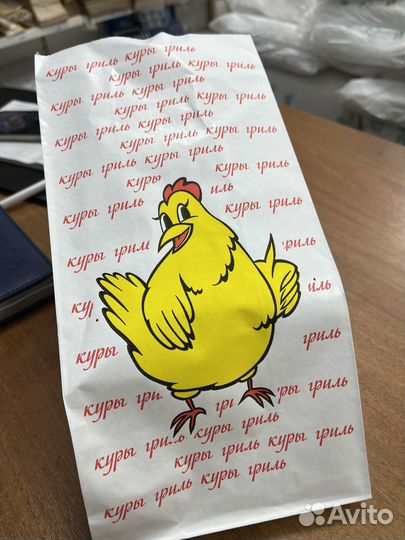 куры гриль куры гриль
куры гриль куры гриль
куры гриль куры гриль
куры гриль куры гриль
куры гриль куры гриль
куры гриль куры гриль
куры гриль куры гриль
куры куры гриль
куры гриль иль
куры гриль куры гриль
куры гриль гриль
куры гриль иль
куры гриль
куры гриль
куры гри куры гриль
куры гриль куры гриль
куры гриль куры гриль
куры гриль куры гриль
Avito